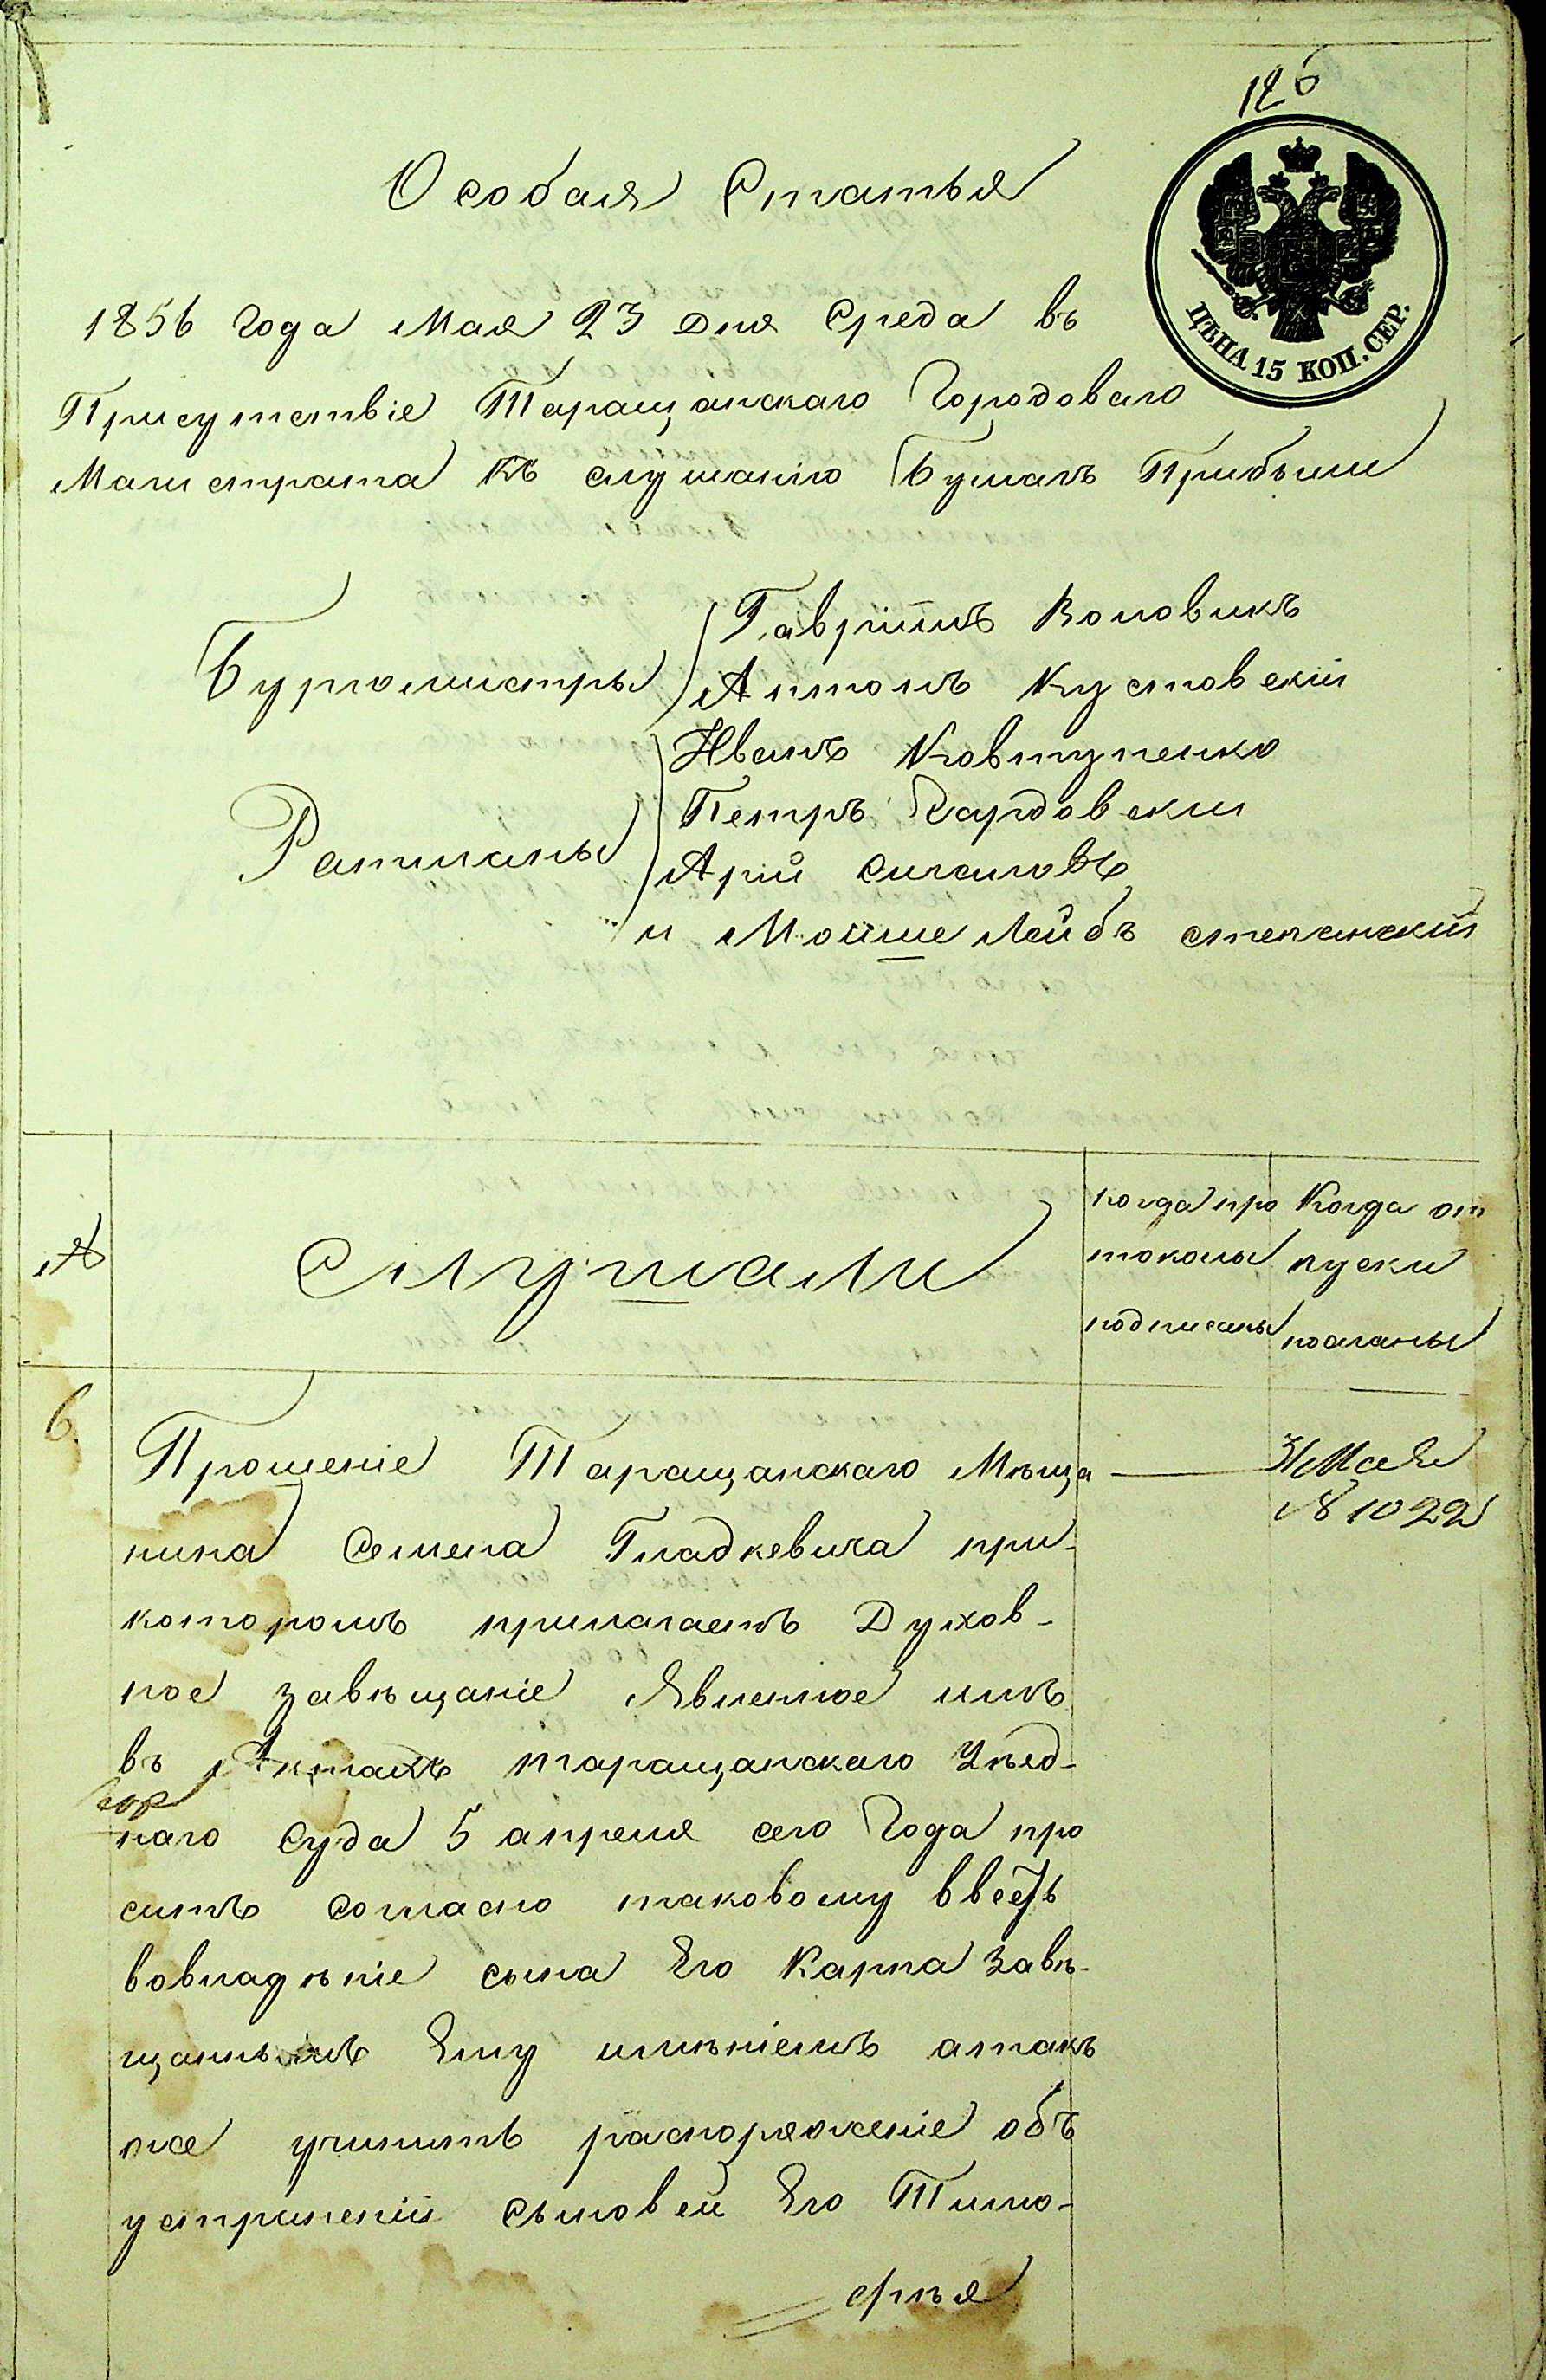 126
Особая Статья
ЦѢНА 15 КОП. СЕР.
1856 Года Мая 23 дня Среда въ
Присутствіе Таращанскаго Городоваго
Магистрата къ слушанію Бумагъ Прибыли
Бургомистры
Гавріилъ Воловикъ
Антонъ Кустовскій
Ратманы
Иванъ Ковтуненко
Петръ Кардовскій
Арій Сигаловъ
и Мойше Лейбъ Степанскій
№
Слушали
когда про
токолы
подписаны
Когда от
пуски
посланы
6
Прошеніе Таращанскаго Мѣща
31 Мая
№ 1022
нина Семена Гладкевича при
которомъ прилагаетъ Духов-
ное завѣщаніе Явленное имъ
въ Актахъ таращанскаго Уѣзд-
наго Суда 5 апреля сего Года про
ситъ согласно таковому ввесть
вовладѣніе сына Его Карпа Завѣ-
щаннымъ Ему имѣніемъ атакъ
же учинить распоряженіе объ
устраненіи сыновей Его Тимо-
фѣя